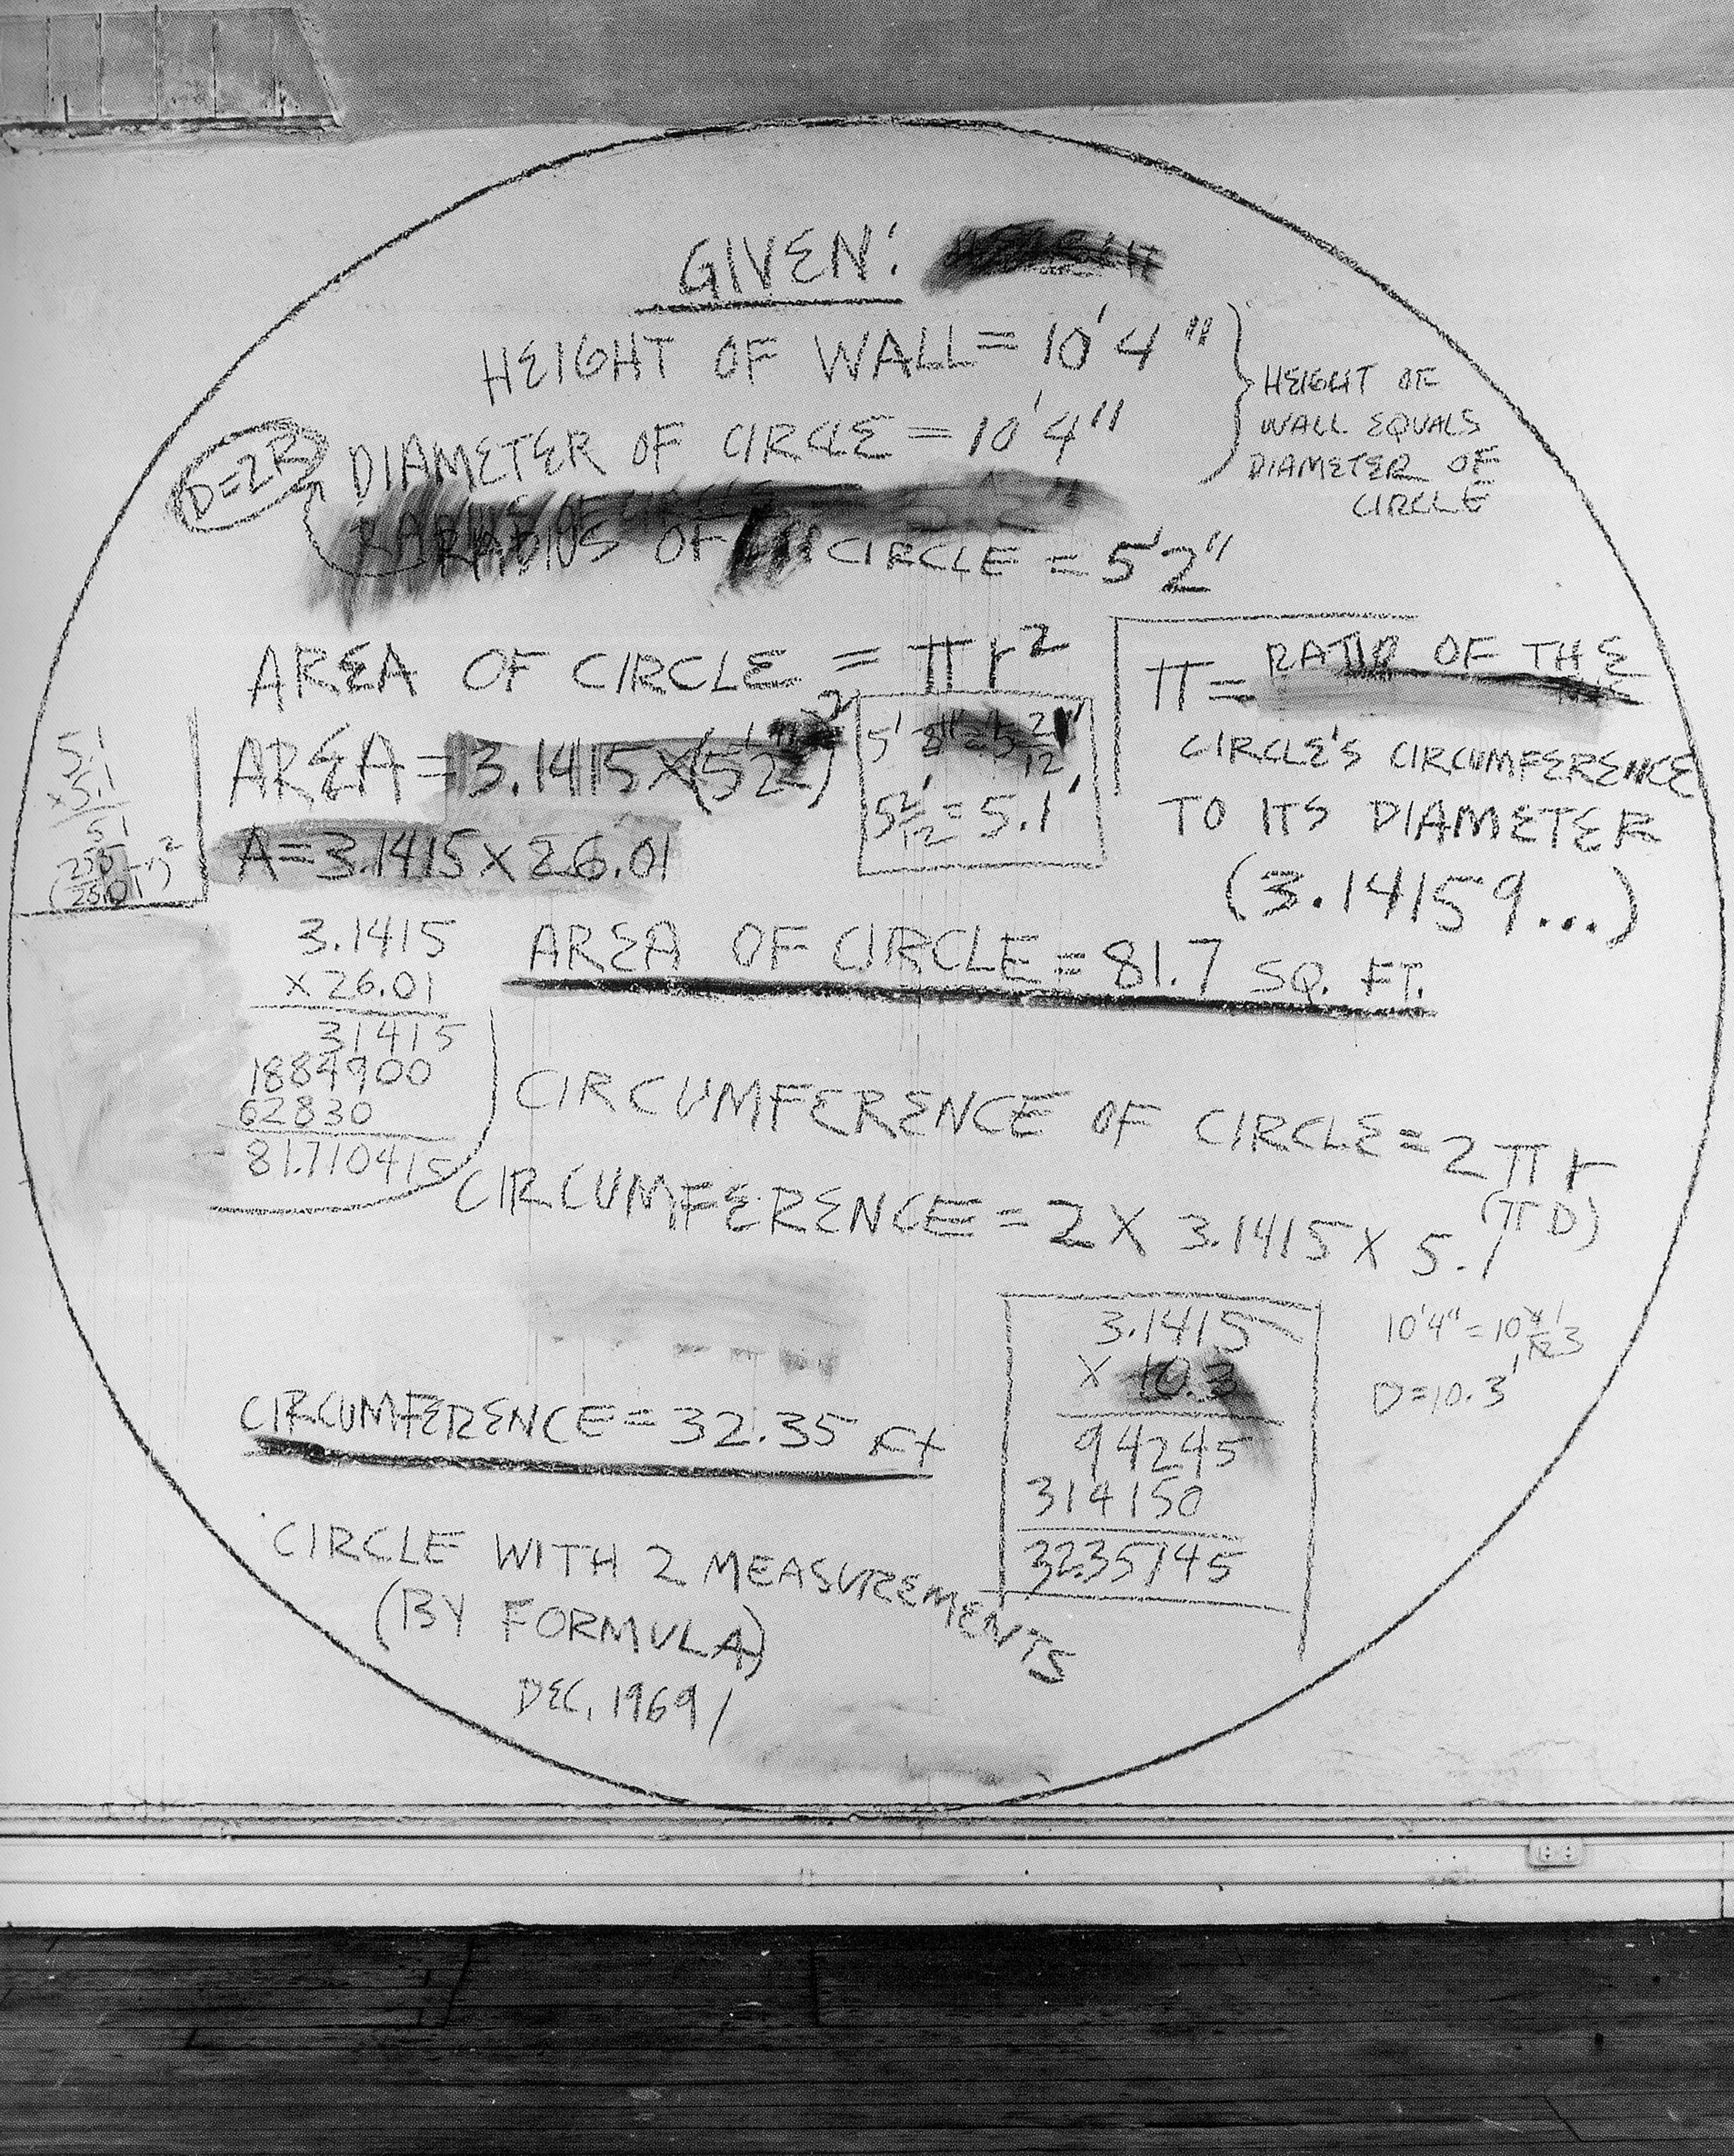 GIVEN:
HEIGHT OF WALL = 10'4"
DIAMETER OF CIRCLE = 10'4"
HEIGHT OF
WALL EQUALS
DIAMETER OF
CIRCLE
D=2R
RADIUS OF CIRCLE = 5'2"
AREA OF CIRCLE = πr²
π = RATIO OF THE
CIRCLE'S CIRCUMFERENCE
TO ITS DIAMETER
(3.14159...)
AREA = 3.1415 X (5'2")²
5 2/12' = 5.1'
A = 3.1415 X 26.01
5.1
x 5.1
51
3.1415
X 26.01
31415
1884900
62830
81.710415
AREA OF CIRCLE = 81.7 SQ. FT.
CIRCUMFERENCE OF CIRCLE = 2πr
(πD)
CIRCUMFERENCE = 2 X 3.1415 X 5.1
3.1415
X 10.3
94245
314150
32.35745
10'4" = 10
D = 10.3'
CIRCUMFERENCE = 32.35 Ft
CIRCLE WITH 2 MEASUREMENTS
(BY FORMULA)
DEC, 1969/